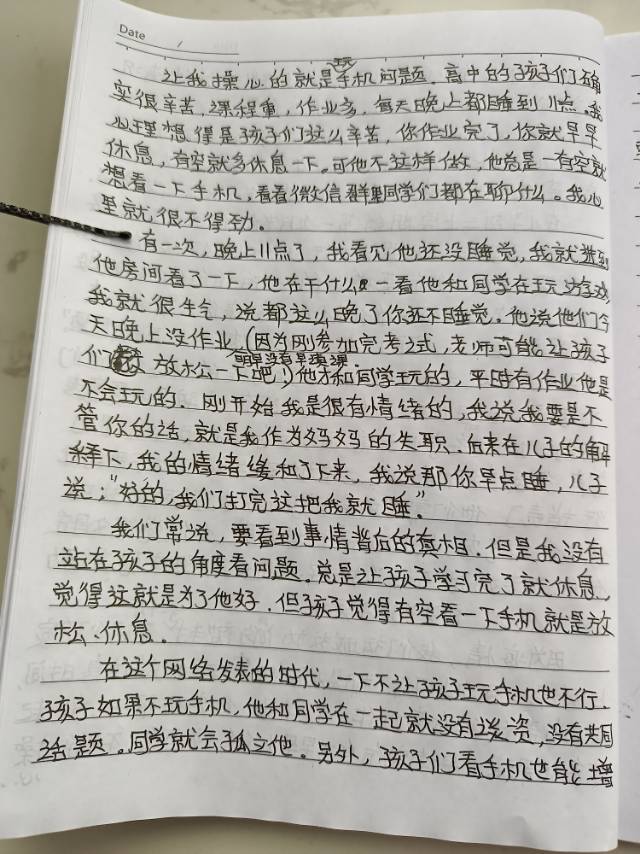 Date /
让我操心的就是玩手机问题。高中的孩子们确
实很辛苦，课程重，作业多，每天晚上都睡到11点。我
心理想得是孩子们这么辛苦，你作业完了，你就早早
休息，有空就多休息一下。可他不这样做，他总是一有空就
想看一下手机，看看微信群里同学们都在聊什么。我心
里就很不得劲。
有一次，晚上11点了，我看见他还没睡觉，我就进到
他房间看了一下，他在干什么，一看他和同学在玩游戏
我就很生气，说都这么晚了你还不睡觉。他说他们今
天晚上没作业（因为刚参加完考试，老师可能让孩子
们放松一下吧！）明早没有早课，他才和同学玩的，平时有作业他是
不会玩的。刚开始我是很有情绪的，我说我要是不
管你的话，就是我作为妈妈的失职。后来在儿子的解
释下，我的情绪缓和了下来，我说那你早点睡，儿子
说："好的，我们打完这把我就睡"
我们常说，要看到事情背后的真相，但是我没有
站在孩子的角度看问题。总是让孩子学习完了就休息，
觉得这就是为了他好，但孩子觉得有空看一下手机就是放
松、休息。
在这个网络发表的时代，一下不让孩子玩手机也不行。
孩子如果不玩手机，他和同学在一起就没有谈资，没有共同
话题。同学就会孤立他。另外，孩子们看手机也能增